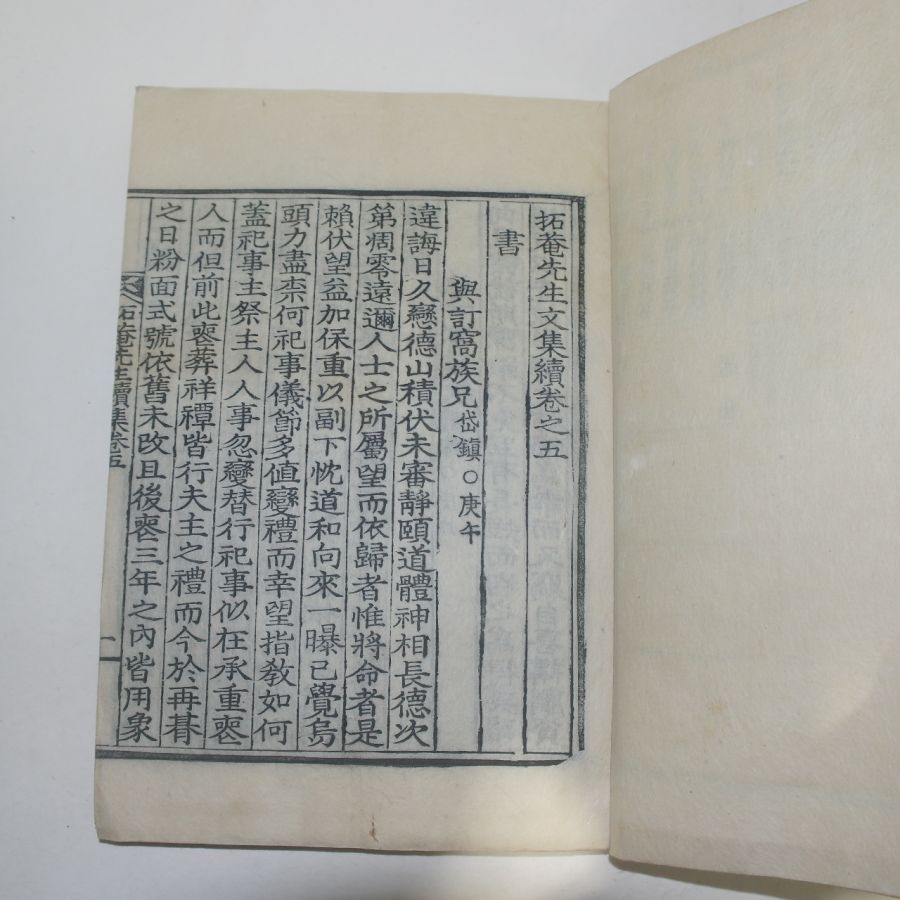 拓菴先生文集續卷之五
書
與訂窩族兄岱鎭○庚午
違誨日久戀德山積伏未審靜頤道體神相長德次
第凋零遠邇人士之所屬望而依歸者惟將命者是
賴伏望益加保重以副下忱道和向來一曝已覺烏
頭力盡柰何祀事儀節多値變禮而幸望指敎如何
蓋祀事主祭主人人事忽變替行祀事似在承重喪
人而但前此喪葬祥禫皆行夫主之禮而今於再朞
之日粉面式號依舊未改且後喪三年之內皆用象
拓菴先生續集卷五
一